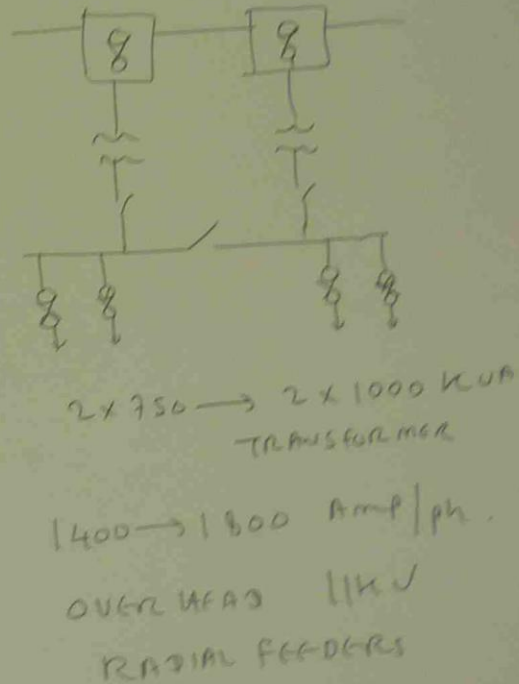 2 x 750 → 2 x 1000 KVA
TRANSFORMER
1400 → 1800 Amp/ph.
OVERHEAD 11KV
RADIAL FEEDERS